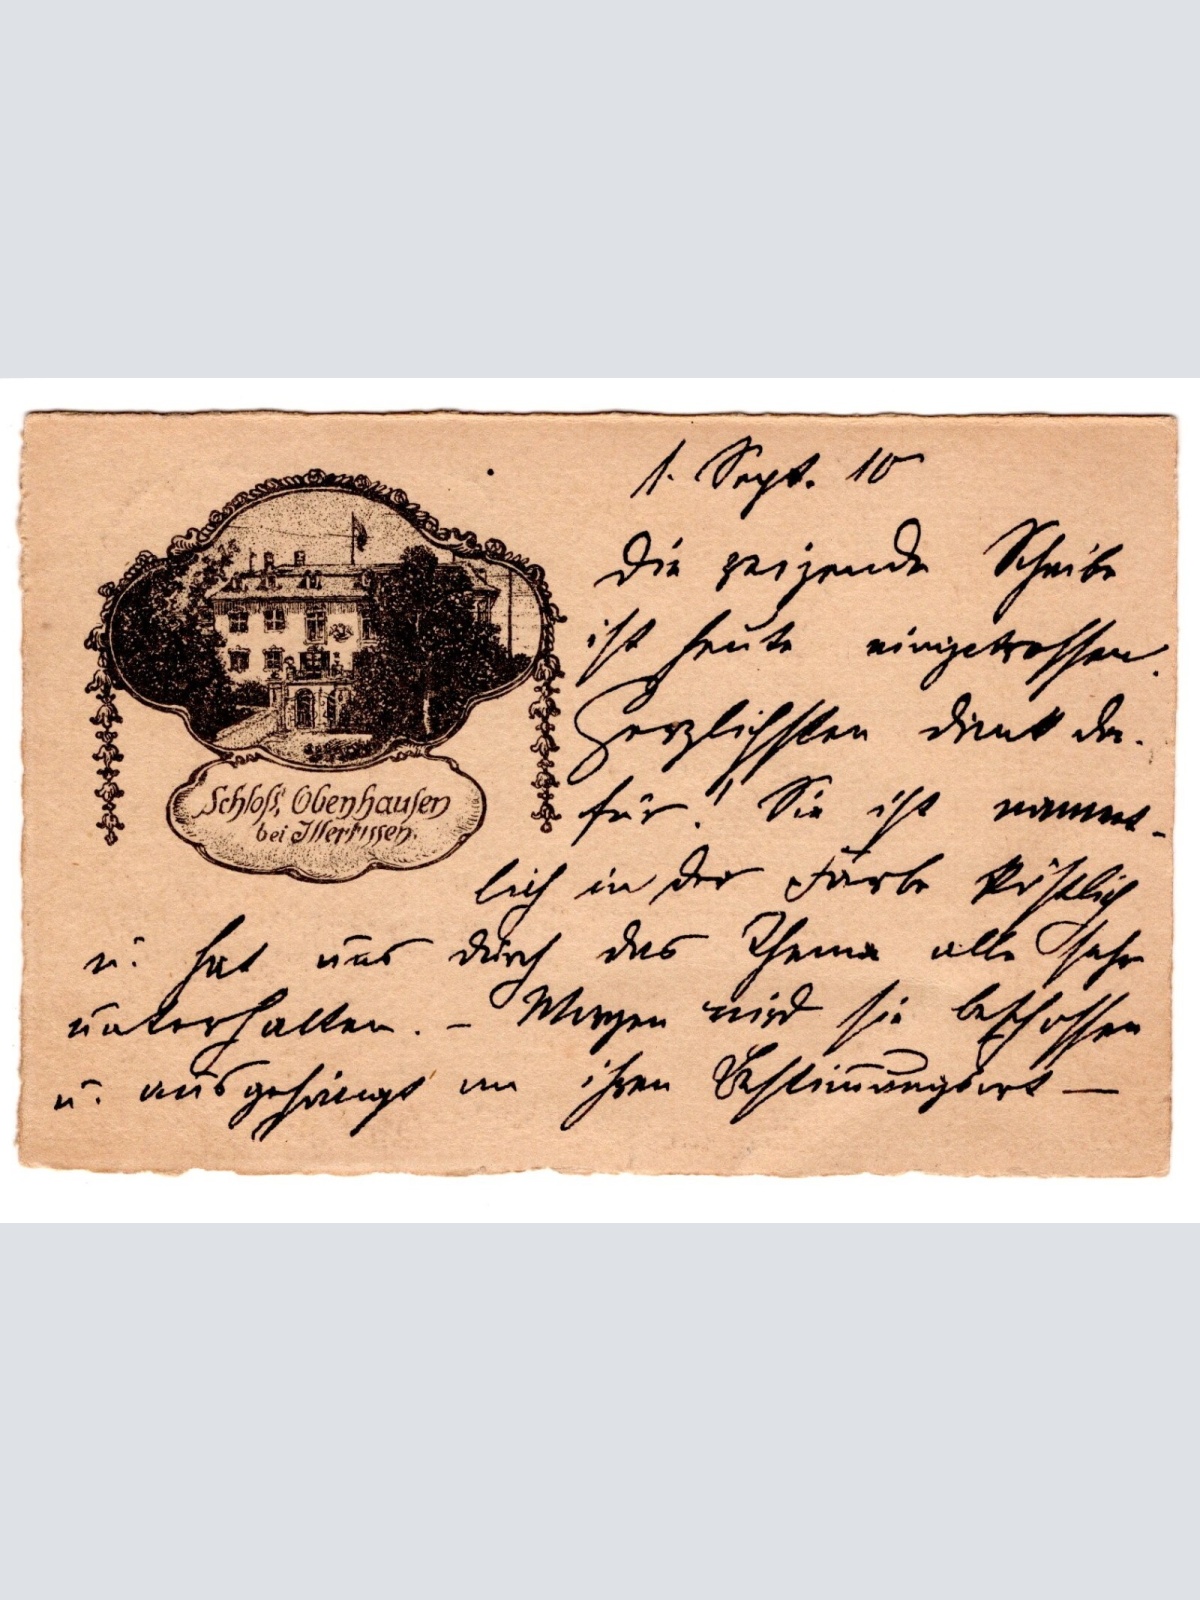 Schloss, Obenhausen
bei Illertissen.
1. Sept. 10
Die reizende Scheibe
ist heute eingetroffen.
Herzlichsten Dank da-
für! Sie ist nament-
lich in der Farbe köstlich
u. hat uns durch das Thema alle sehr
unterhalten. – Morgen wird sie beschossen
u. ausgehängt an ihren Bestimmungsort —